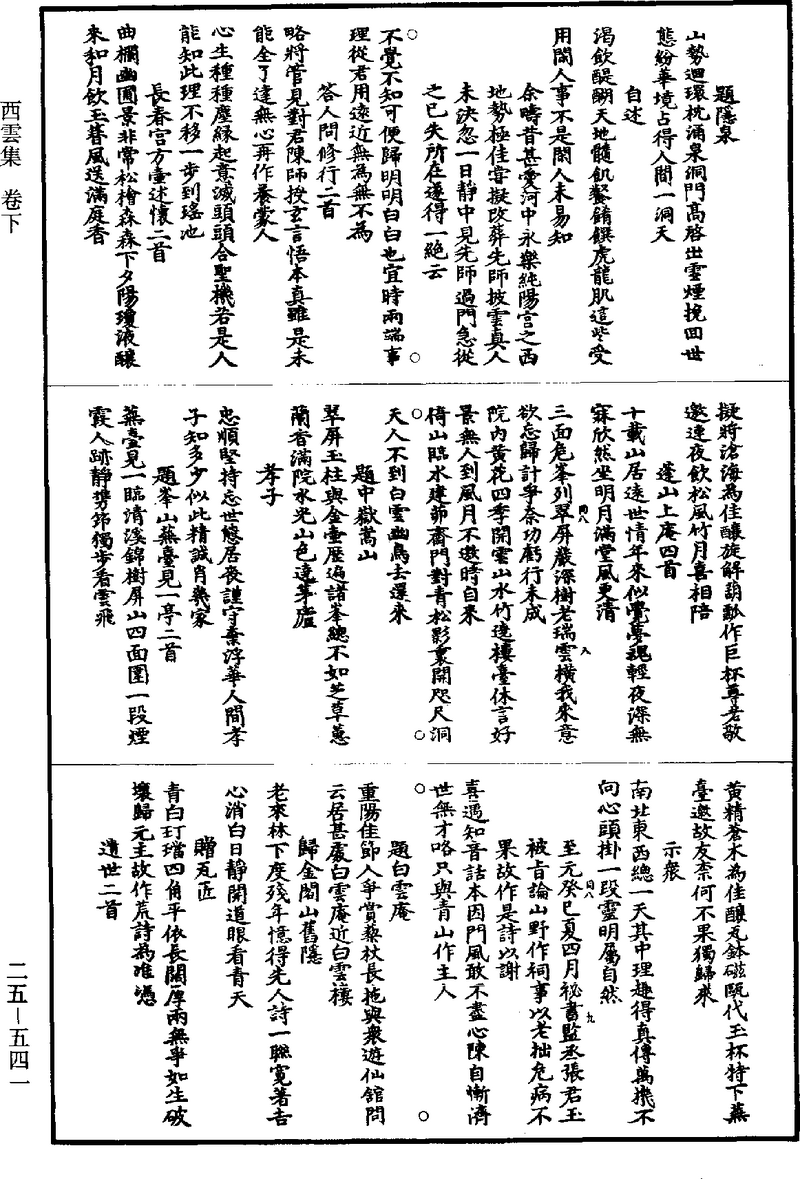 題隱泉
山勢迴環枕涌泉洞門高啓出雲煙挽回世
態紛華境占得人間一洞天
自述
渴飲醍醐天地髓飢餐餚饌虎龍肌這些受
用閑人事不是閑人未易知
余疇昔甚愛河中永樂純陽宮之西
地勢極佳嘗擬改葬先師披雲真人
未決忽一日靜中見先師過門急從
之已失所在遂得一絕云
不覺不知可便歸明明白白也宜時兩端事
理從君用遠近無為無不為
答人問修行二首
略將管見對君陳師授玄言悟本真雖是未
能全了達無心再作養蒙人
心生種種塵緣起意滅頭頭合聖機若是人
能知此理不移一步到瑤池
長春宮方壺述懷二首
曲欄幽圃景非常松檜森森下夕陽瓊液釀
來和月飲玉簪風送滿庭香
擬將滄海為佳釀旋解葫瓢作巨杯尊老敬
邀連夜飲松風竹月喜相陪
蓬山上庵四首
十載山居遠世情年來似覺夢魂輕夜深無
寐欣然坐明月滿堂風更清
三面危峯列翠屏巖深樹老瑞雲橫我來意
欲忘歸計爭奈功虧行未成
院內黃花四季開雲山水竹遶樓臺休言好
景無人到風月不邀時自來
倚山臨水建茆齋門對青松影裏開咫尺洞
天人不到白雲幽鳥去還來
題中嶽嵩山
翠屏玉柱與金壺歷遍諸峯總不如芝草蕙
蘭香滿院水光山色遶茅廬
孝子
忠順堅持忘世態居喪謹守棄浮華人間孝
子知多少似此精誠肖幾家
題峯山燕臺見一亭二首
燕臺見一臨清溪錦樹屏山四面圍一段煙
霞人跡靜携筇獨步看雲飛
黃精蒼朮為佳釀瓦鉢磁甌代玉杯特下燕
臺邀故友柰何不果獨歸來
示衆
南北東西總一天其中理趣得真傳萬機不
向心頭掛一段靈明屬自然
至元癸巳夏四月祕書監丞張君玉
被旨論山野作祠事以老拙危病不
果故作是詩以謝
喜遇知音話本因門風敢不盡心陳自慚濟
世無才略只與青山作主人
題白雲庵
重陽佳節人爭賞藜杖長拖與衆遊仙館問
云居甚處白雲庵近白雲樓
歸金閣山舊隱
老來林下度殘年憶得先人詩一聯寬著吉
心消白日靜開道眼看青天
贈瓦匠
青白玎璫四角平依長闊厚兩無爭如生破
壞歸元主故作荒詩為准憑
遺世二首
西雲集　卷下
二五－五四一